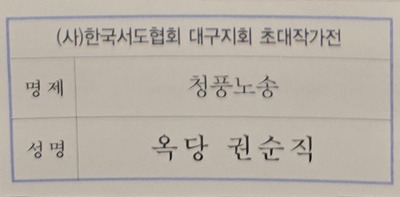 (사)한국서도협회 대구지회 초대작가전
명제 청풍노송
성명 옥당 권순직